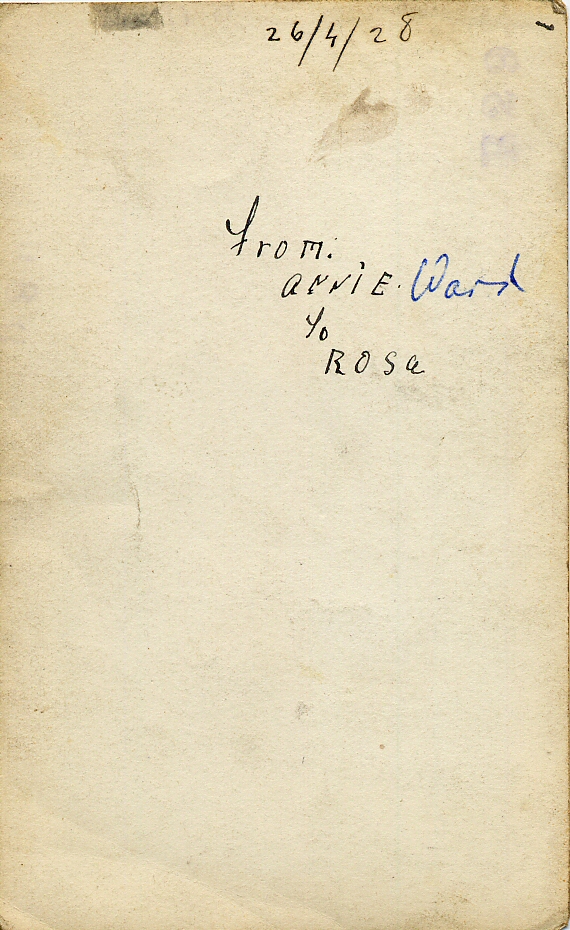 26/4/28
From.
ANNIE. Ward
To
ROSa